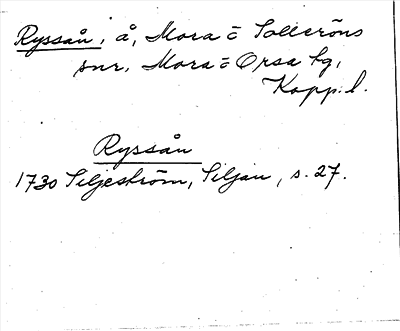 Ryssån, å, Mora o Solleröns
snr, Mora o Orsa tg,
Kopp. l.
Ryssån
1730 Siljeström, Siljan, s. 27.